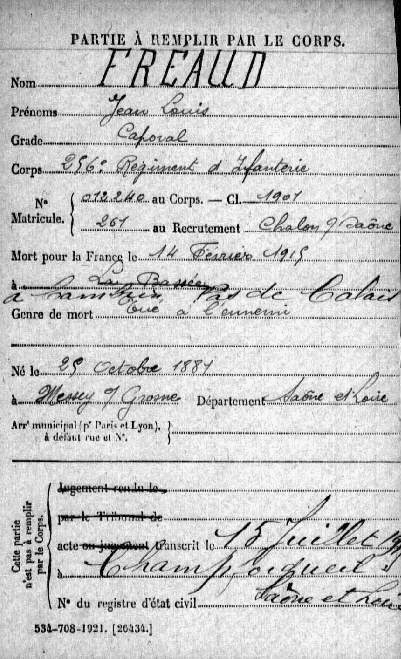 PARTIE À REMPLIR PAR LE CORPS.
Nom FREAUD
Prénoms Jean Louis
Grade Caporal
Corps 256e Régiment d'Infanterie
N° Matricule. { 012240 au Corps. — Cl. 1901
261 au Recrutement Chalon s/Saône
Mort pour la France le 14 Février 1915
à La Bassée
à Pas de Calais
Genre de mort Tué à l'ennemi
Né le 25 Octobre 1881
à Messey s/ Grosne Département Saône et Loire
Arrt municipal (pr Paris et Lyon), à défaut rue et N°. }
Cette partie n'est pas à remplir par le Corps.
Jugement rendu le
par le Tribunal de
acte ou jugement transcrit le 15 Juillet
à Champ
Saône et Loire
N° du registre d'état civil
534-708-1921. [26434.]